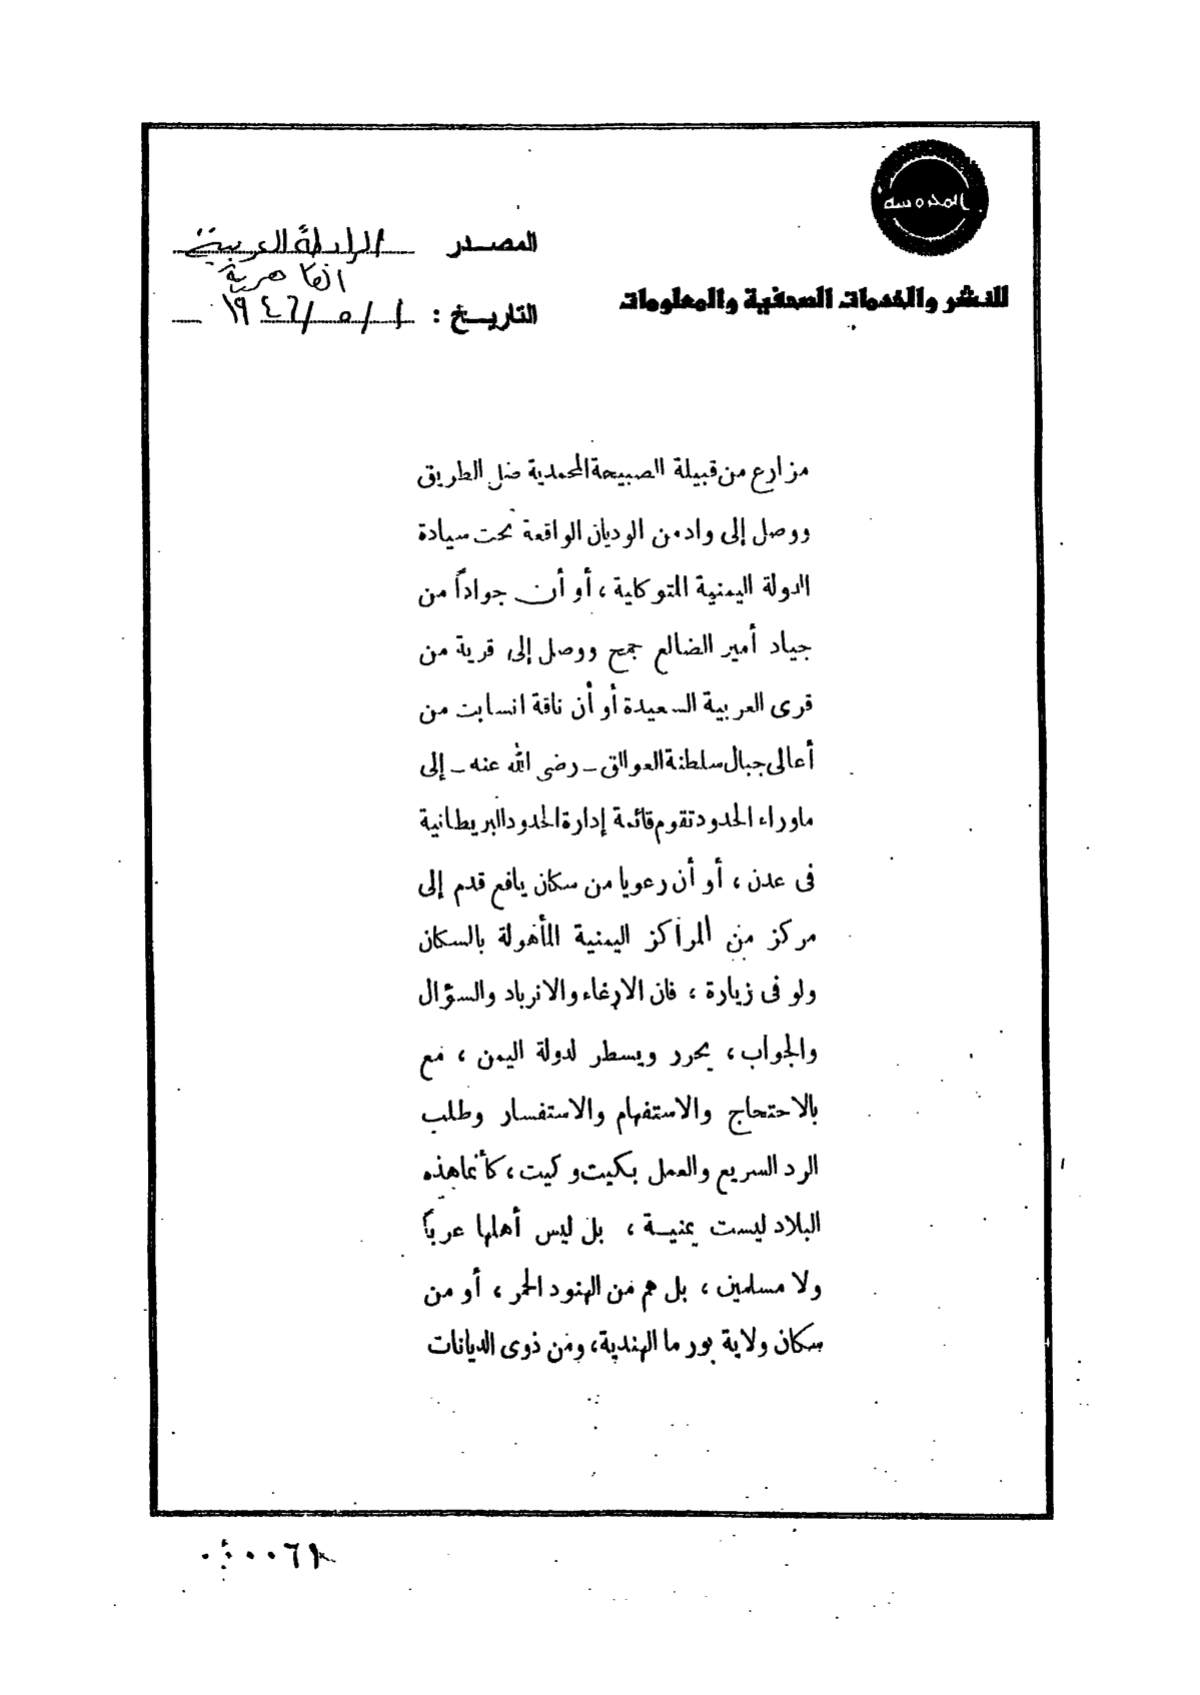 المحروسة
للنشر والخدمات الصحفية والمعلومات
المصدر الرابطة العربية
القاهرية
التاريخ : ١/٥/١٩٤٦
مزارع من قبيلة الصبيحة المحمدية ضل الطريق
ووصل إلى واد من الوديان الواقعة تحت سيادة
الدولة اليمنية المتوكلية ، أو أن جواداً من
جياد أمير الضالع جمح ووصل إلى قرية من
قرى العربية السعيدة أو أن ناقة انسابت من
أعالى جبال سلطنة العوالق ـ رضى الله عنه ـ إلى
ماوراء الحدود تقوم قائمة إدارة الحدود البريطانية
فى عدن ، أو أن رعويا من سكان يافع قدم إلى
مركز من المراكز اليمنية المأهولة بالسكان
ولو فى زيارة ، فان الارغاء والازباد والسؤال
والجواب ، يحرر ويسطر لدولة اليمن ، مع
بالاحتجاج والاستفهام والاستفسار وطلب
الرد السريع والعمل بكيت وكيت ، كأنما هذه
البلاد ليست يمنية ، بل ليس أهلها عرباً
ولا مسلمين ، بل هم من الهنود الحمر ، أو من
سكان ولاية بورما الهندية ، ومن ذوى الديانات